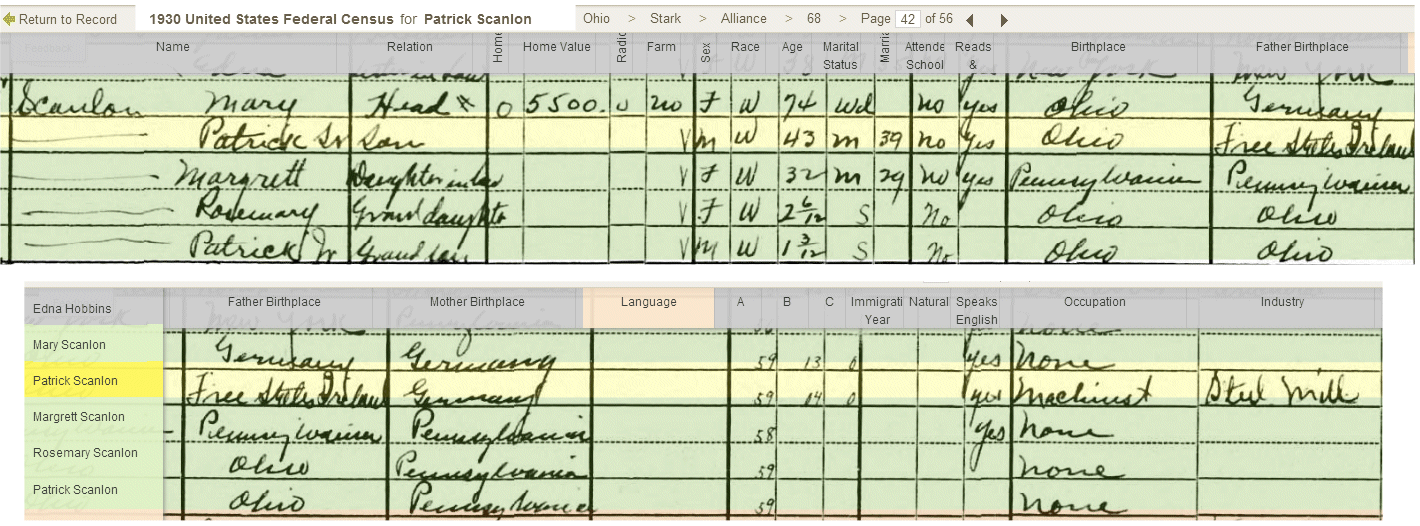 Return to Record 1930 United States Federal Census for Patrick Scanlon Ohio > Stark > Alliance > 68 > Page 42 of 56
Feedback Name Relation Home Home Value Radio Farm Sex Race Age Marital Status Marri Attende School Reads & Birthplace Father Birthplace
New York New York
Scanlon Mary Head O 5500. no F W 74 Wd no yes Ohio Germany
Patrick Sr Son V m W 43 m 39 no yes Ohio Free States Ireland
Margrett Daughter in law V F W 32 m 29 no yes Pennsylvania Pennsylvania
Rosemary Grand daughter V F W 2 6/12 S No Ohio Ohio
Patrick Jr Grand son V M W 1 3/12 S No Ohio Ohio
Edna Hobbins Father Birthplace Mother Birthplace Language A B C Immigrati Year Natural Speaks English Occupation Industry
Mary Scanlon Germany Germany 59 13 0 yes None
Patrick Scanlon Free States Ireland Germany 59 14 0 yes Machinist Steel Mill
Margrett Scanlon Pennsylvania Pennsylvania 58 yes None
Rosemary Scanlon Ohio Pennsylvania 59 none
Patrick Scanlon Ohio Pennsylvania 59 none